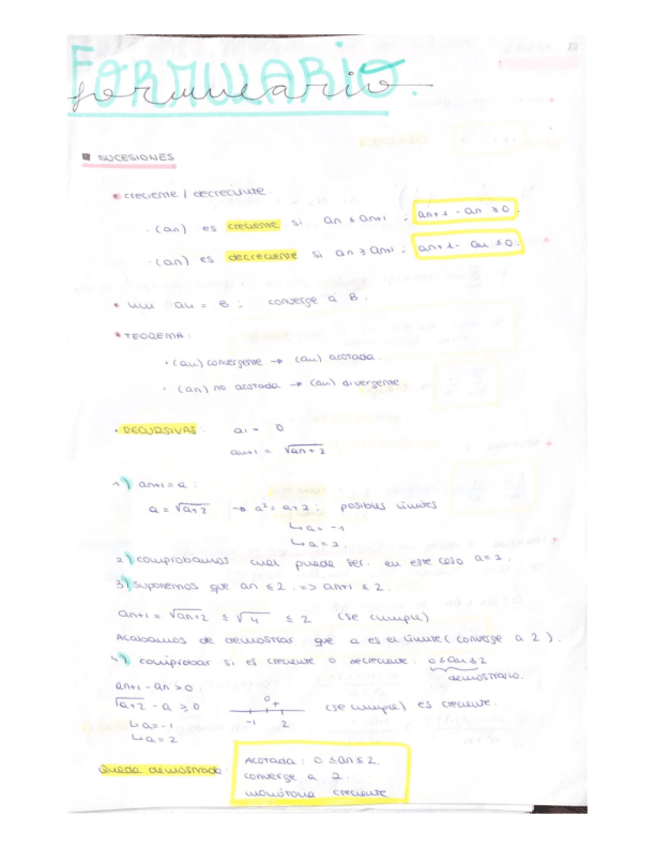 FORMULARIO.
formulario
SUCESIONES
* creciente / decreciente.
· (an) es creciente si an ≤ an+1 ; an+1 - an ≥ 0.
· (an) es decreciente si an ≥ an+1 ; an+1 - an ≤ 0.
* lim an = B ; converge a B.
* TEOREMA:
· (an) convergente → (an) acotada.
· (an) no acotada → (an) divergente.
· RECURSIVAS: a1 = 0
an+1 = √an+2
1) an+1 = a :
a = √a+2 → a² = a+2 ; posibles límites
↳ a = -1
↳ a = 2.
2) comprobamos cual puede ser. en este caso a = 2.
3) suponemos que an ≤ 2. => an+1 ≤ 2.
an+1 = √an+2 ≤ √4 ≤ 2 (se cumple)
Acabamos de demostrar que a es el límite (converge a 2).
4) comprobar si es creciente o decreciente: 0 ≤ an ≤ 2
demostrado.
an+1 - an > 0.
√a+2 - a ≥ 0 0 + -1 2 (se cumple) es creciente.
↳ a = -1
↳ a = 2
Queda demostrado: Acotada: 0 ≤ an ≤ 2.
converge a 2.
monótona creciente